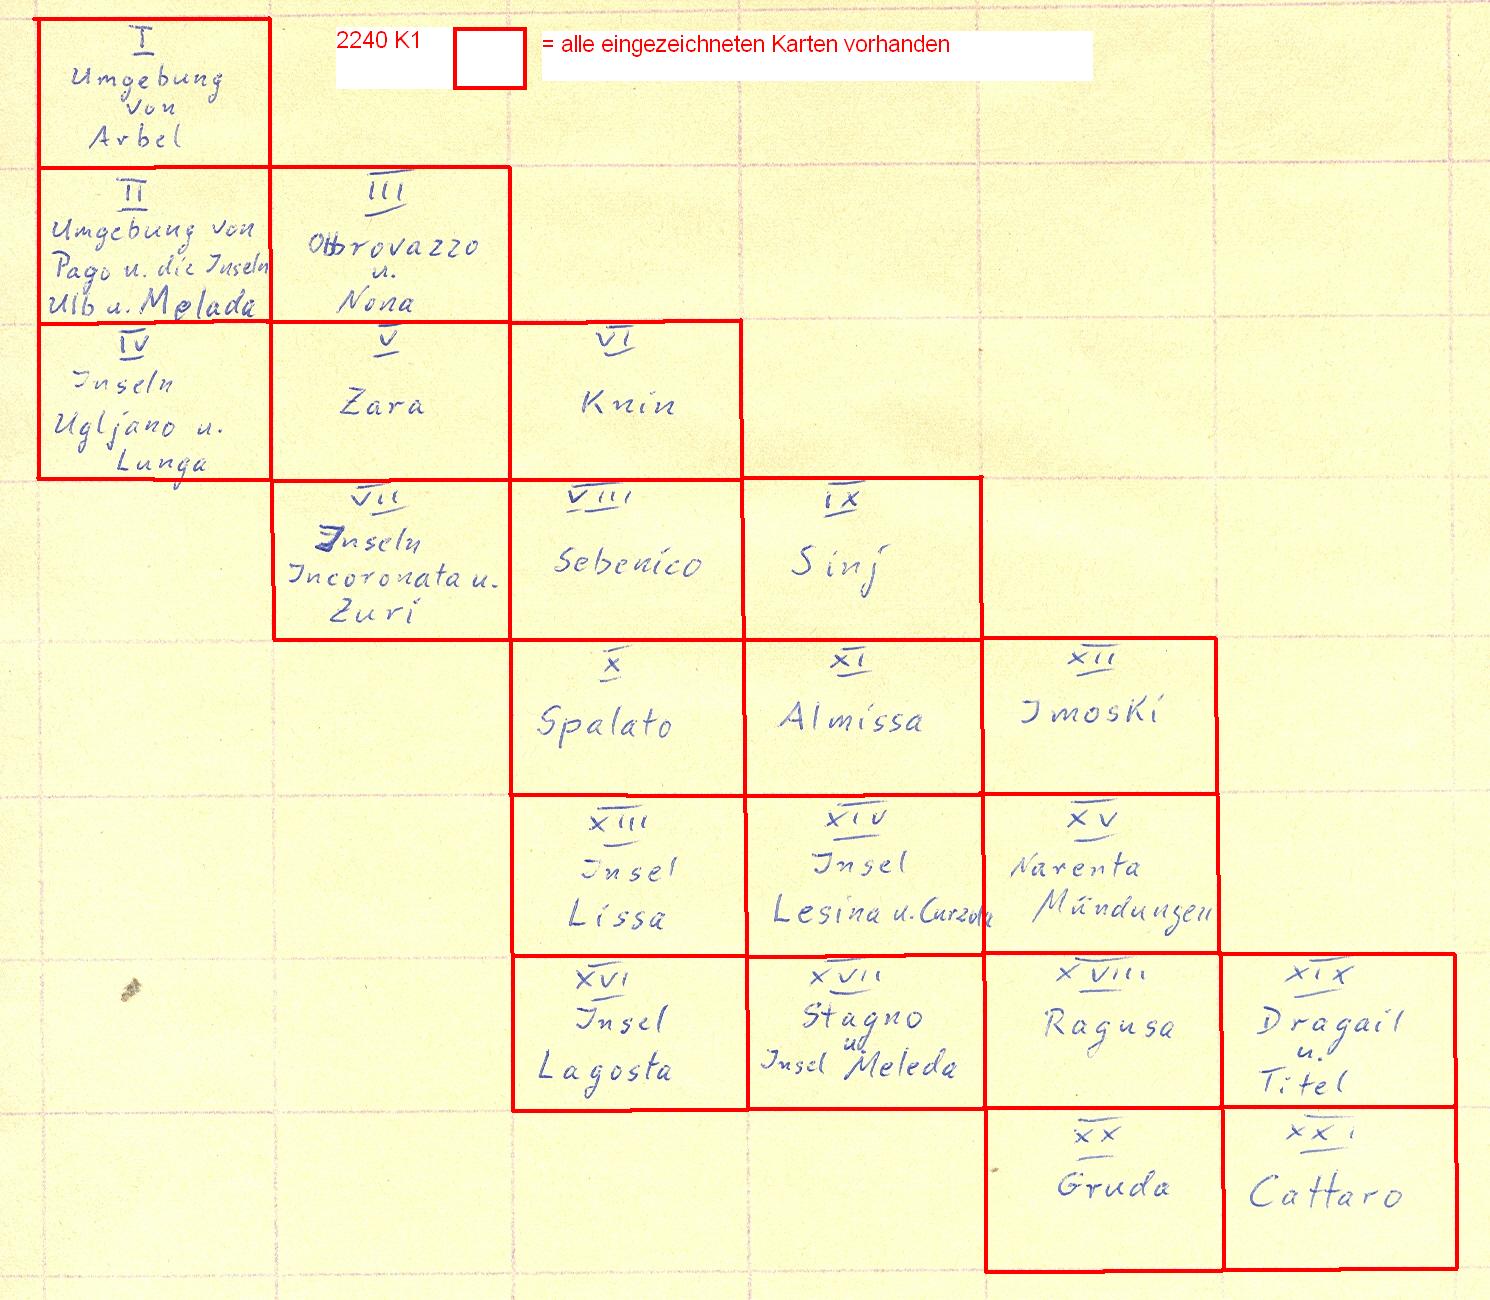 2240 K1
= alle eingezeichneten Karten vorhanden
I
Umgebung
von
Arbel
II
Umgebung von
Pago u. die Inseln
Ulb u. Melada
III
Obrovazzo
u.
Nona
IV
Inseln
Ugljano u.
Lunga
V
Zara
VI
Knin
VII
Inseln
Incoronata u.
Zuri
VIII
Sebenico
IX
Sinj
X
Spalato
XI
Almissa
XII
Imoski
XIII
Insel
Lissa
XIV
Insel
Lesina u. Curzola
XV
Narenta
Mündungen
XVI
Insel
Lagosta
XVII
Stagno
u.
Insel Meleda
XVIII
Ragusa
XIX
Dragail
u.
Titel
XX
Gruda
XXI
Cattaro